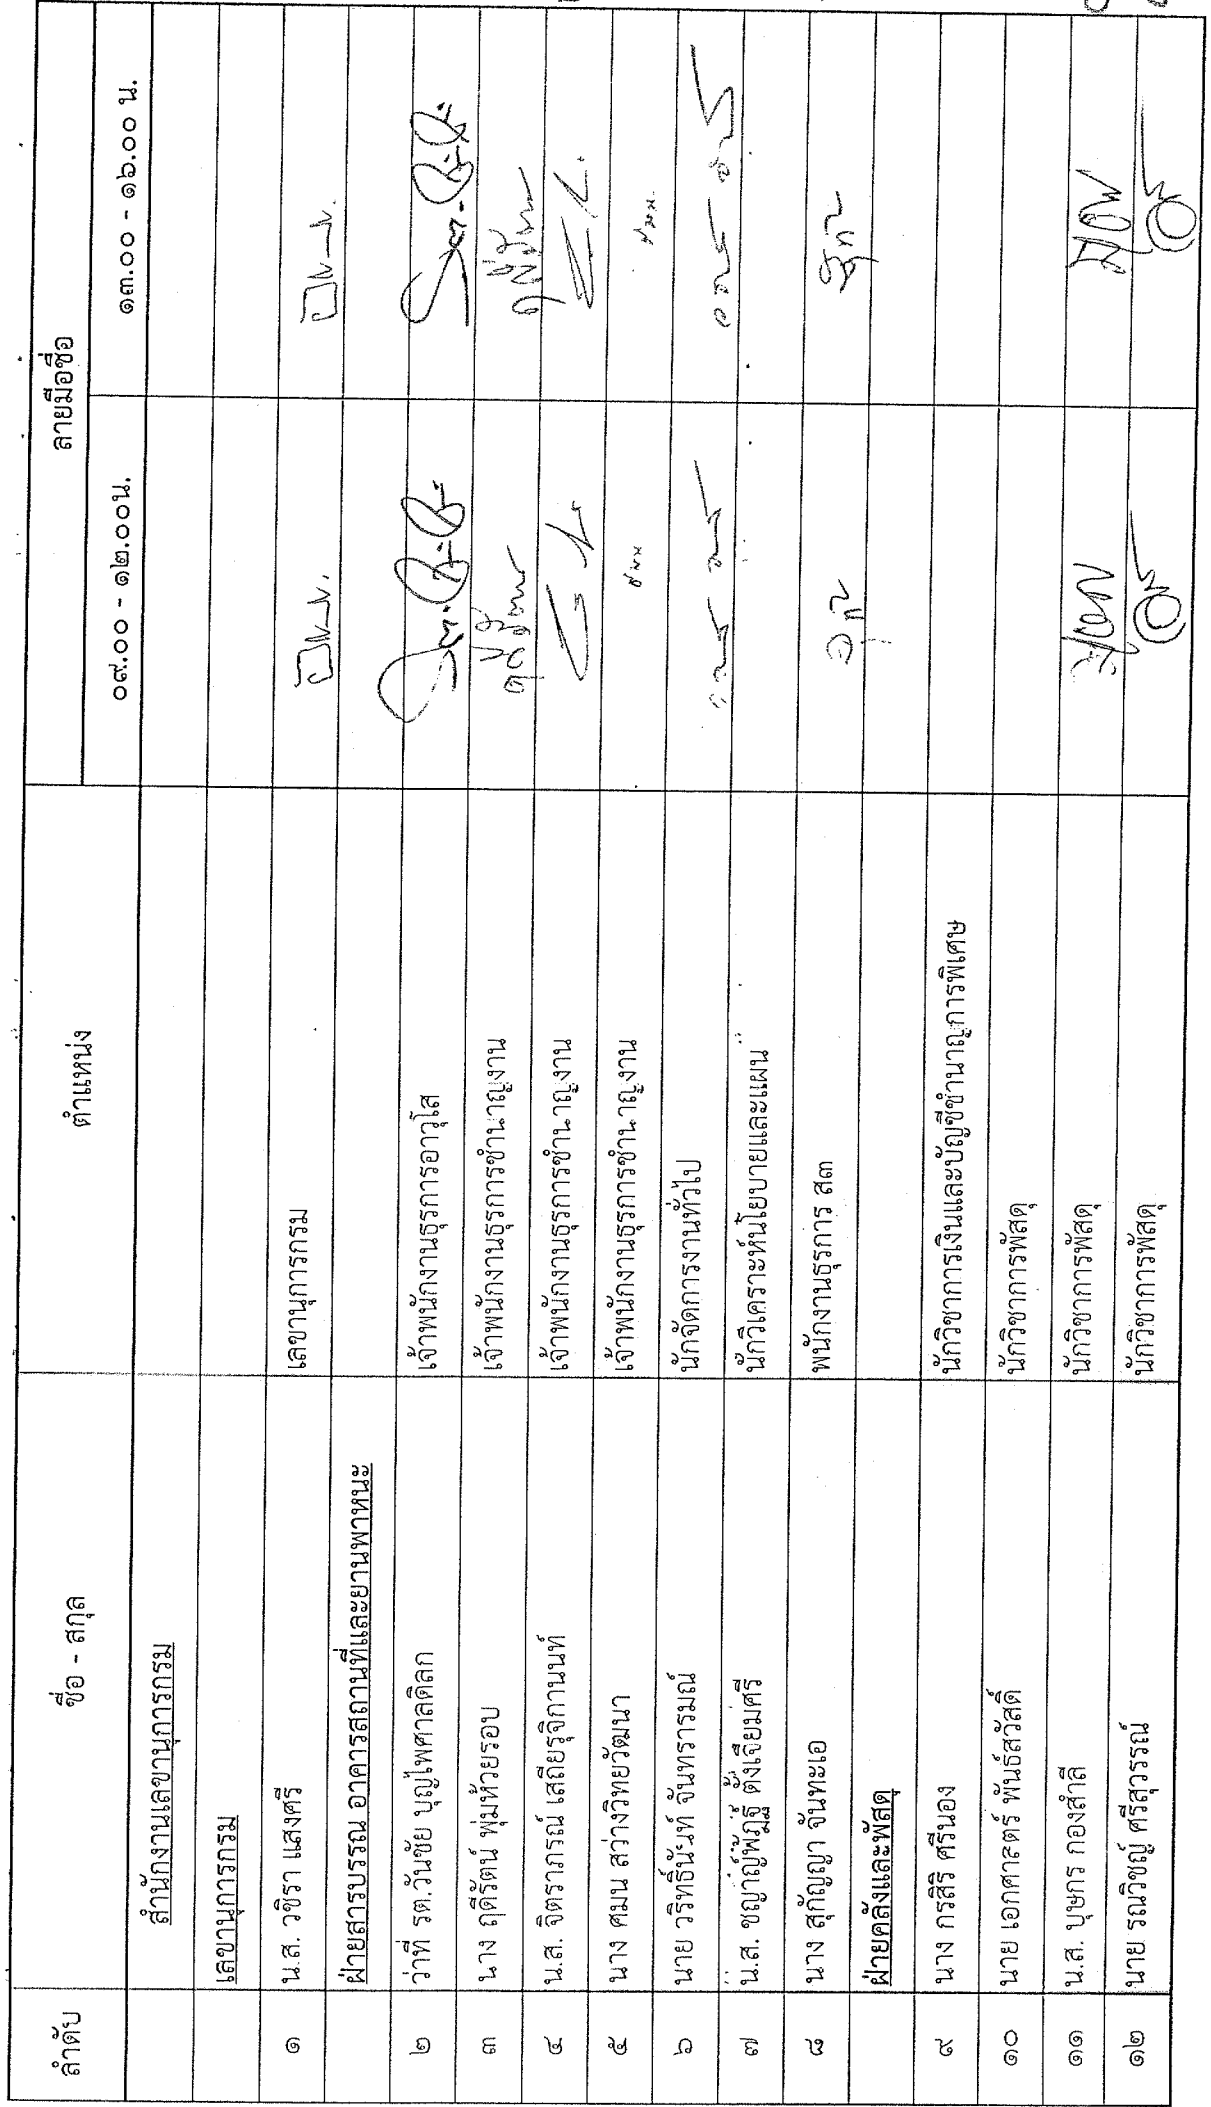 ลำดับ ชื่อ - สกุล ตำแหน่ง ลายมือชื่อ
๐๙.๐๐ - ๑๒.๐๐น. ๑๓.๐๐ - ๑๖.๐๐ น.
สำนักงานเลขานุการกรม
เลขานุการกรม
๑ น.ส. วชิรา แสงศรี เลขานุการกรม
ฝ่ายสารบรรณ อาคารสถานที่และยานพาหนะ
๒ ว่าที่ รต.วันชัย บุญไพศาลดิลก เจ้าพนักงานธุรการอาวุโส
๓ นาง ฤดีรัตน์ พุ่มห้วยรอบ เจ้าพนักงานธุรการชำนาญงาน
๔ น.ส. จิตราภรณ์ เสถียรุจิกานนท์ เจ้าพนักงานธุรการชำนาญงาน
๕ นาง ศมน สว่างวิทยวัฒนา เจ้าพนักงานธุรการชำนาญงาน
๖ นาย วริทธิ์นันท์ จันทรารมณ์ นักจัดการงานทั่วไป
๗ น.ส. ตั้งเจียมศรี นักวิเคราะห์นโยบายและแผน
๘ นาง สุกัญญา จันทะเอ พนักงานธุรการ ส๓
ฝ่ายคลังและพัสดุ
๙ นาง กรสิริ ศรีนอง นักวิชาการเงินและบัญชีชำนาญการพิเศษ
๑๐ นาย เอกศาสตร์ พันธ์สวัสดิ์ นักวิชาการพัสดุ
๑๑ น.ส. บุษกร กองสำลี นักวิชาการพัสดุ
๑๒ นาย รณวิชญ์ ศรีสุวรรณ์ นักวิชาการพัสดุ